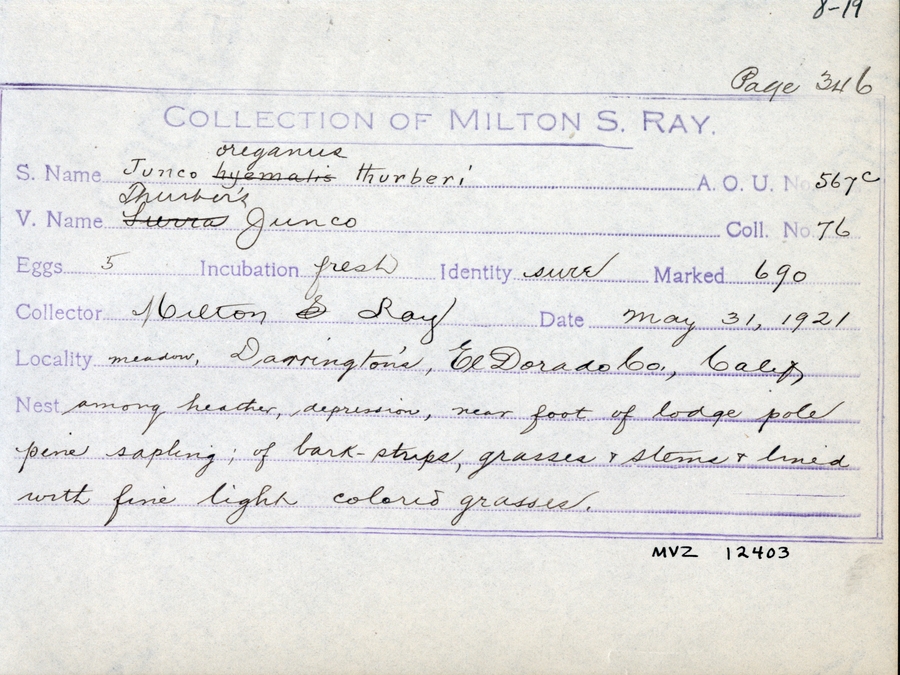 8-19
Page 346
COLLECTION OF MILTON S. RAY.
oreganus
S. Name Junco hyemalis thurberi A. O. U. No. 567c
Thurber's
V. Name Sierra Junco Coll. No. 76
Eggs 5 Incubation fresh Identity sure Marked 690
Collector Milton S Ray Date May 31, 1921
Locality meadow, Darrington's, El Dorado Co., Calif,
Nest among heather, depression, near foot of lodge pole
pine sapling; of bark-strips, grasses & stems & lined
with fine light colored grasses.
MVZ 12403